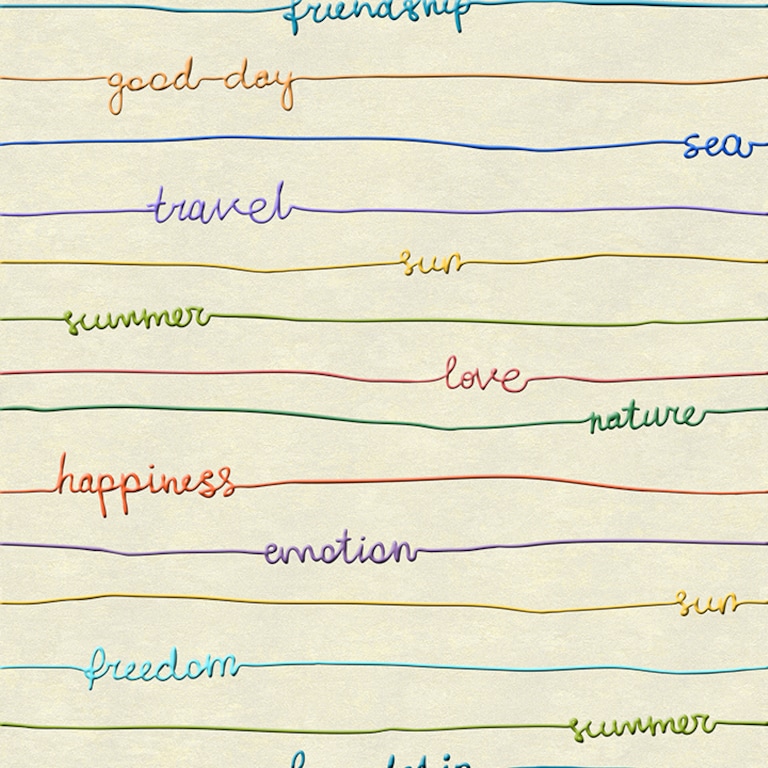 friendship
good day
sea
travel
sun
summer
love
nature
happiness
emotion
sun
freedom
summer
friendship